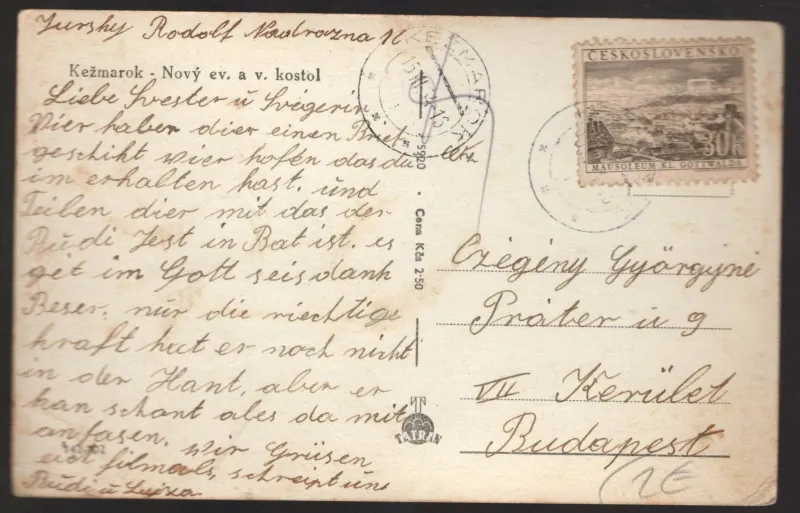 Jursky Rodolf Nadrazna 16
Kežmarok - Nový ev. a v. kostol
Liebe Svester u Svégerin
Vier haber dier einen Brief
geschikt wier hofen das du
im erhalten hast, und
Teilen dier mit das der
Rudi Jest in Bat ist. es
gét im Gott seis dank
Beser, nur die riechtige
kraft hat er noch nicht
in der Hant, aber er
kan schont ales da mit
anfasen. wir Grüsen
eich filmals, schreipt uns
Rudi u
KEŽMAROK
5920 · Cena Kčs 2·50
TATRAN
ČESKOSLOVENSKO
30h
MAUSOLEUM KL. GOTTWALDA
Czégény Györgyné
Práter u 9
VII Kerület
Budapest
2€